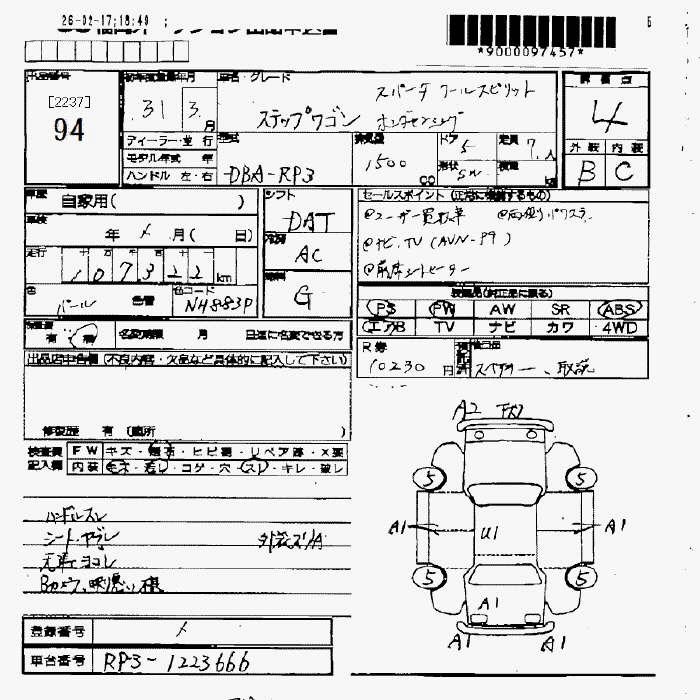 26-02-17;18:49 ;
*9000097457*
出品番号
[2237]
94
初年度登録年月
31 3 月
車名・グレード
スパーダ クールスピリット
ステップワゴン ホンダセンシング
評価点
4
外装 内装
B C
ディーラー・並行
モデル年式 年
ハンドル 左・右
型式
DBA-RP3
排気量
1500 CC
ドア
5
形状
SW
定員 7 人
積載 kg
車歴 自家用( )
車検 年 月( 日)
走行
107322 km
色
パール
色替
色コード
NH883P
シフト
DAT
冷房
AC
燃料
G
セールスポイント (正常に機能するもの)
@ユーザー買取車 @両側パワスラ
@ナビ、TV (AVN-P9)
@前席シートヒーター
装備品(純正品に限る)
PS PW AW SR ABS
エアB TV ナビ カワ 4WD
有 ・ 無
名変期限 月 日迄に名変できる方
R券
10230 円
スペアキー、取説
出品店申告欄 (不良内容・欠品など具体的に記入して下さい)
修復歴 有 (箇所 )
検査員
記入欄
FW キズ・飛石・ヒビ割・リペア跡・X要
内装
コゲ・穴・スレ・キレ・破レ
ハンドルスレ
シートヤブレ
天張ヨコレ
A2
5 5
A1 U1 A1
5 5
A1
A1 A1
登録番号
車台番号 RP3-1223666